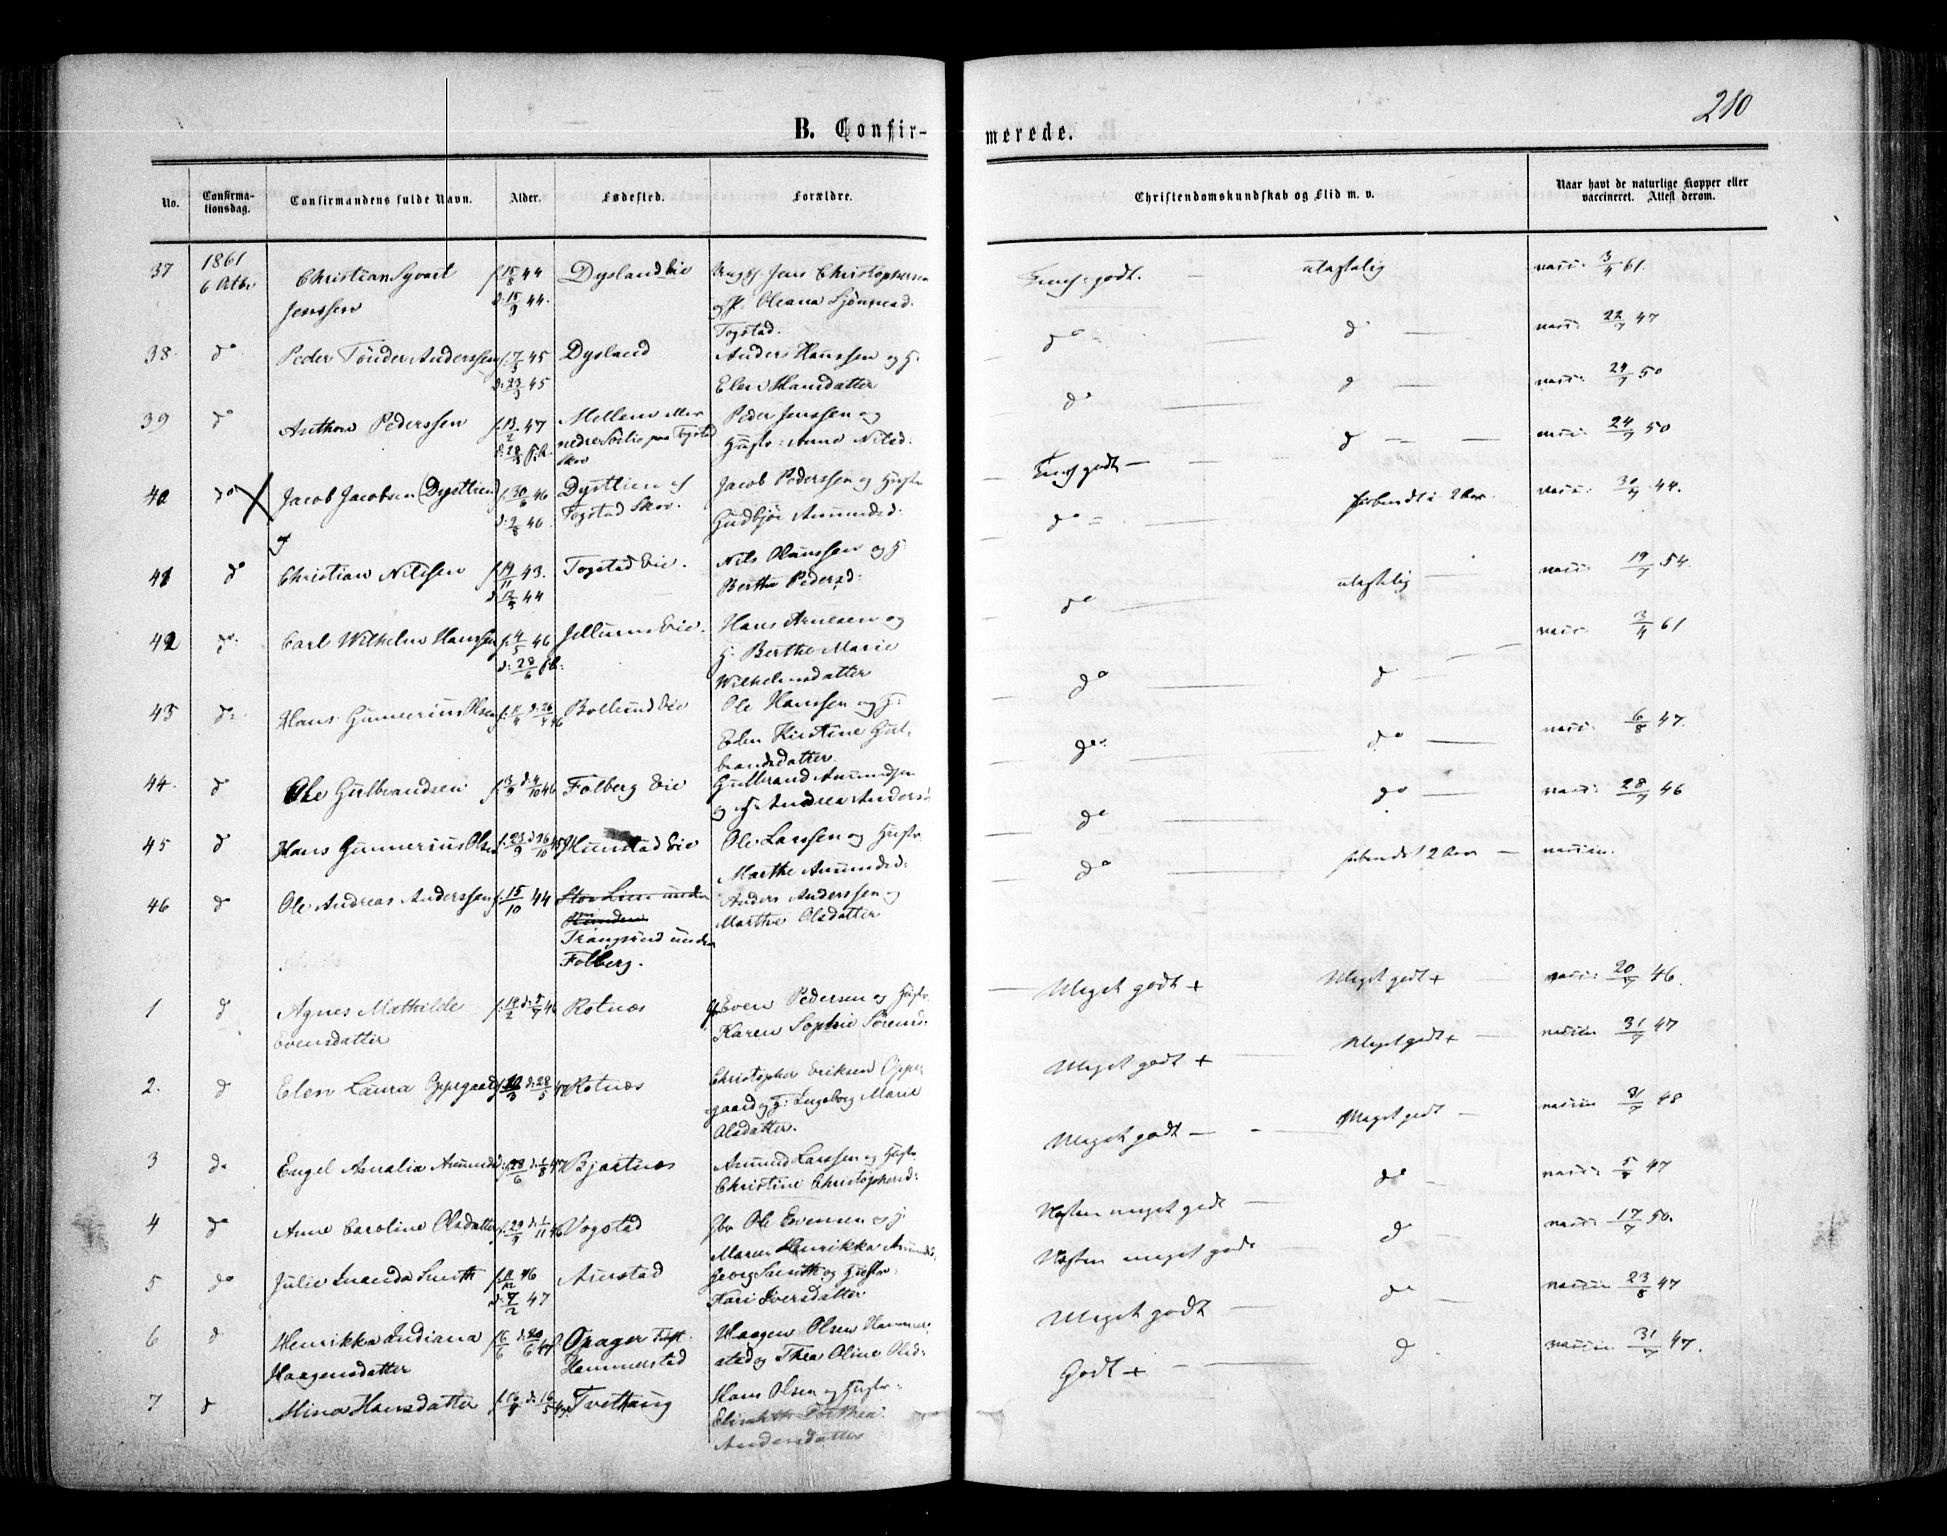 210
B. Confir- merede.
No. Confirma-tionsdag. Confirmandens fulde Navn. Alder. Fødested. Forældre. Christendomskundskab og Flid m. v. Naar havt de naturlige Kopper eller vaccineret. Attest derom.
37 1861 6 Octbr Christian Syvart Jenssen f. 15/8 44 d. 15/9 44. Dysland Eie Jens Christophersen og Oleana Togstad.
godt. — ulastelig vacc: 3/4 61.
38. do Peder Tönder Anderssen f. 7/3 45 d. 23/3 45 Dysland Anders Hanssen og H. Elen Hansdatter
do — d — vacc: 22/7 47
39 do Anthon Pederssen f. 13/2 47 Mellem eller nedre paa Togstad Skov Peder Jenssen og Hustr: Anne Nilsd:
do — vacc: 24/7 50
40 do Jacob Jacobsen (Dysttien) f. 30/6 46 d. 2/8 46. Dysttien af Togstad Skov. Jacob Pederssen og Hustr Gudbjør Amundsd:
godt — d — — 24/7 50
41 do Christian Nilssen f. 19/11 43. d. 12/5 44 Togstad Eie. Nils Olaussen og H. Berthe Pedersd:
do — 2 vacc: 30/7 44.
42 do. Carl Wilhelm Hanssen f. 4/5 46 Jellum Eie. Hans Arnesen og H. Berthe Marie Wilhelmsdatter
do — ulastelig — vacc: 19/7 54.
43 do. Hans Gunnerius Olsen f. 11/4 d. 26/4 46 Bollund Eie Ole Hanssen og H: Elen Kirstine Gulbrandsdatter.
do — d — vacc: 3/4 61
44. d Ole Gulbrandsen f. 13/9 d. 4/10 46 Folberg Eie Gulbrand Amundsen og H. Andrea Andersd:
do — do — vacc: 6/8 47.
45 d Hans Gunnerius Olsen f. 23/9 d. 26/10 Hunstad Eie Ole Larssen og Hustr Marthe Amundsd:
do — do — vacc: 28/7 46
46 d Ole Andreas Anderssen f. 15/10 44 Trangsund under Folberg. Anders Anderssen og Marthe Olsdatter
do — 2 — vaccin.
1 d Agnes Mathilde Evensdatter f. 14/2 d. 5/7 46 Rotnæs Even Pedersen og Hustr Karen Sophie Sørensd:
— Meget godt + Meget godt + — vacc: 20/7 46.
2. d Elen Laura Oppegaard d. 28/5 47 Rotnæs Christopher Eriksen Oppegaard og H: Ingeborg Marie Olsdatter.
Meget godt + — Meget godt + — vaccin 31/7 47
3 do Engel Amalia Amundsd f. 28/6 d. 1/8 47 Bjertnæs Amund Larssen og Hustr Christine Christophersd:
Meget godt — - — Meget godt — vaccin 31/7 48
4 do Anne Caroline Olsdatter f. 29/9 d. 1/11 46 Vogstad Gbr Ole Evensen og H. Maren Henrikka Amundsd:
Næsten meget godt — do — vacc: 5/8 47
5 do Julie Smith f. 11/12 46 d. 7/2 47 Aurstad Georg Smith og Hustr: Kari Iversdatter
Næsten meget godt — d — vacc: 17/7 50.
6 d Henrikka Indiana Haagensdatter f. 6/6 d. 20/6 47 Opager Hammerstad Haagen Olsen Hammerstad og Thea Oline Olsd:
Meget godt — do — vaccin 23/8 47
7 d Mina Hansdatter f. 16/4 d. 16/5 47 Tvethaug Hans Olsen og Hustr: Elisabeth Dorthea Andersdatter
Godt + — — d. vaccin 31/7 47.